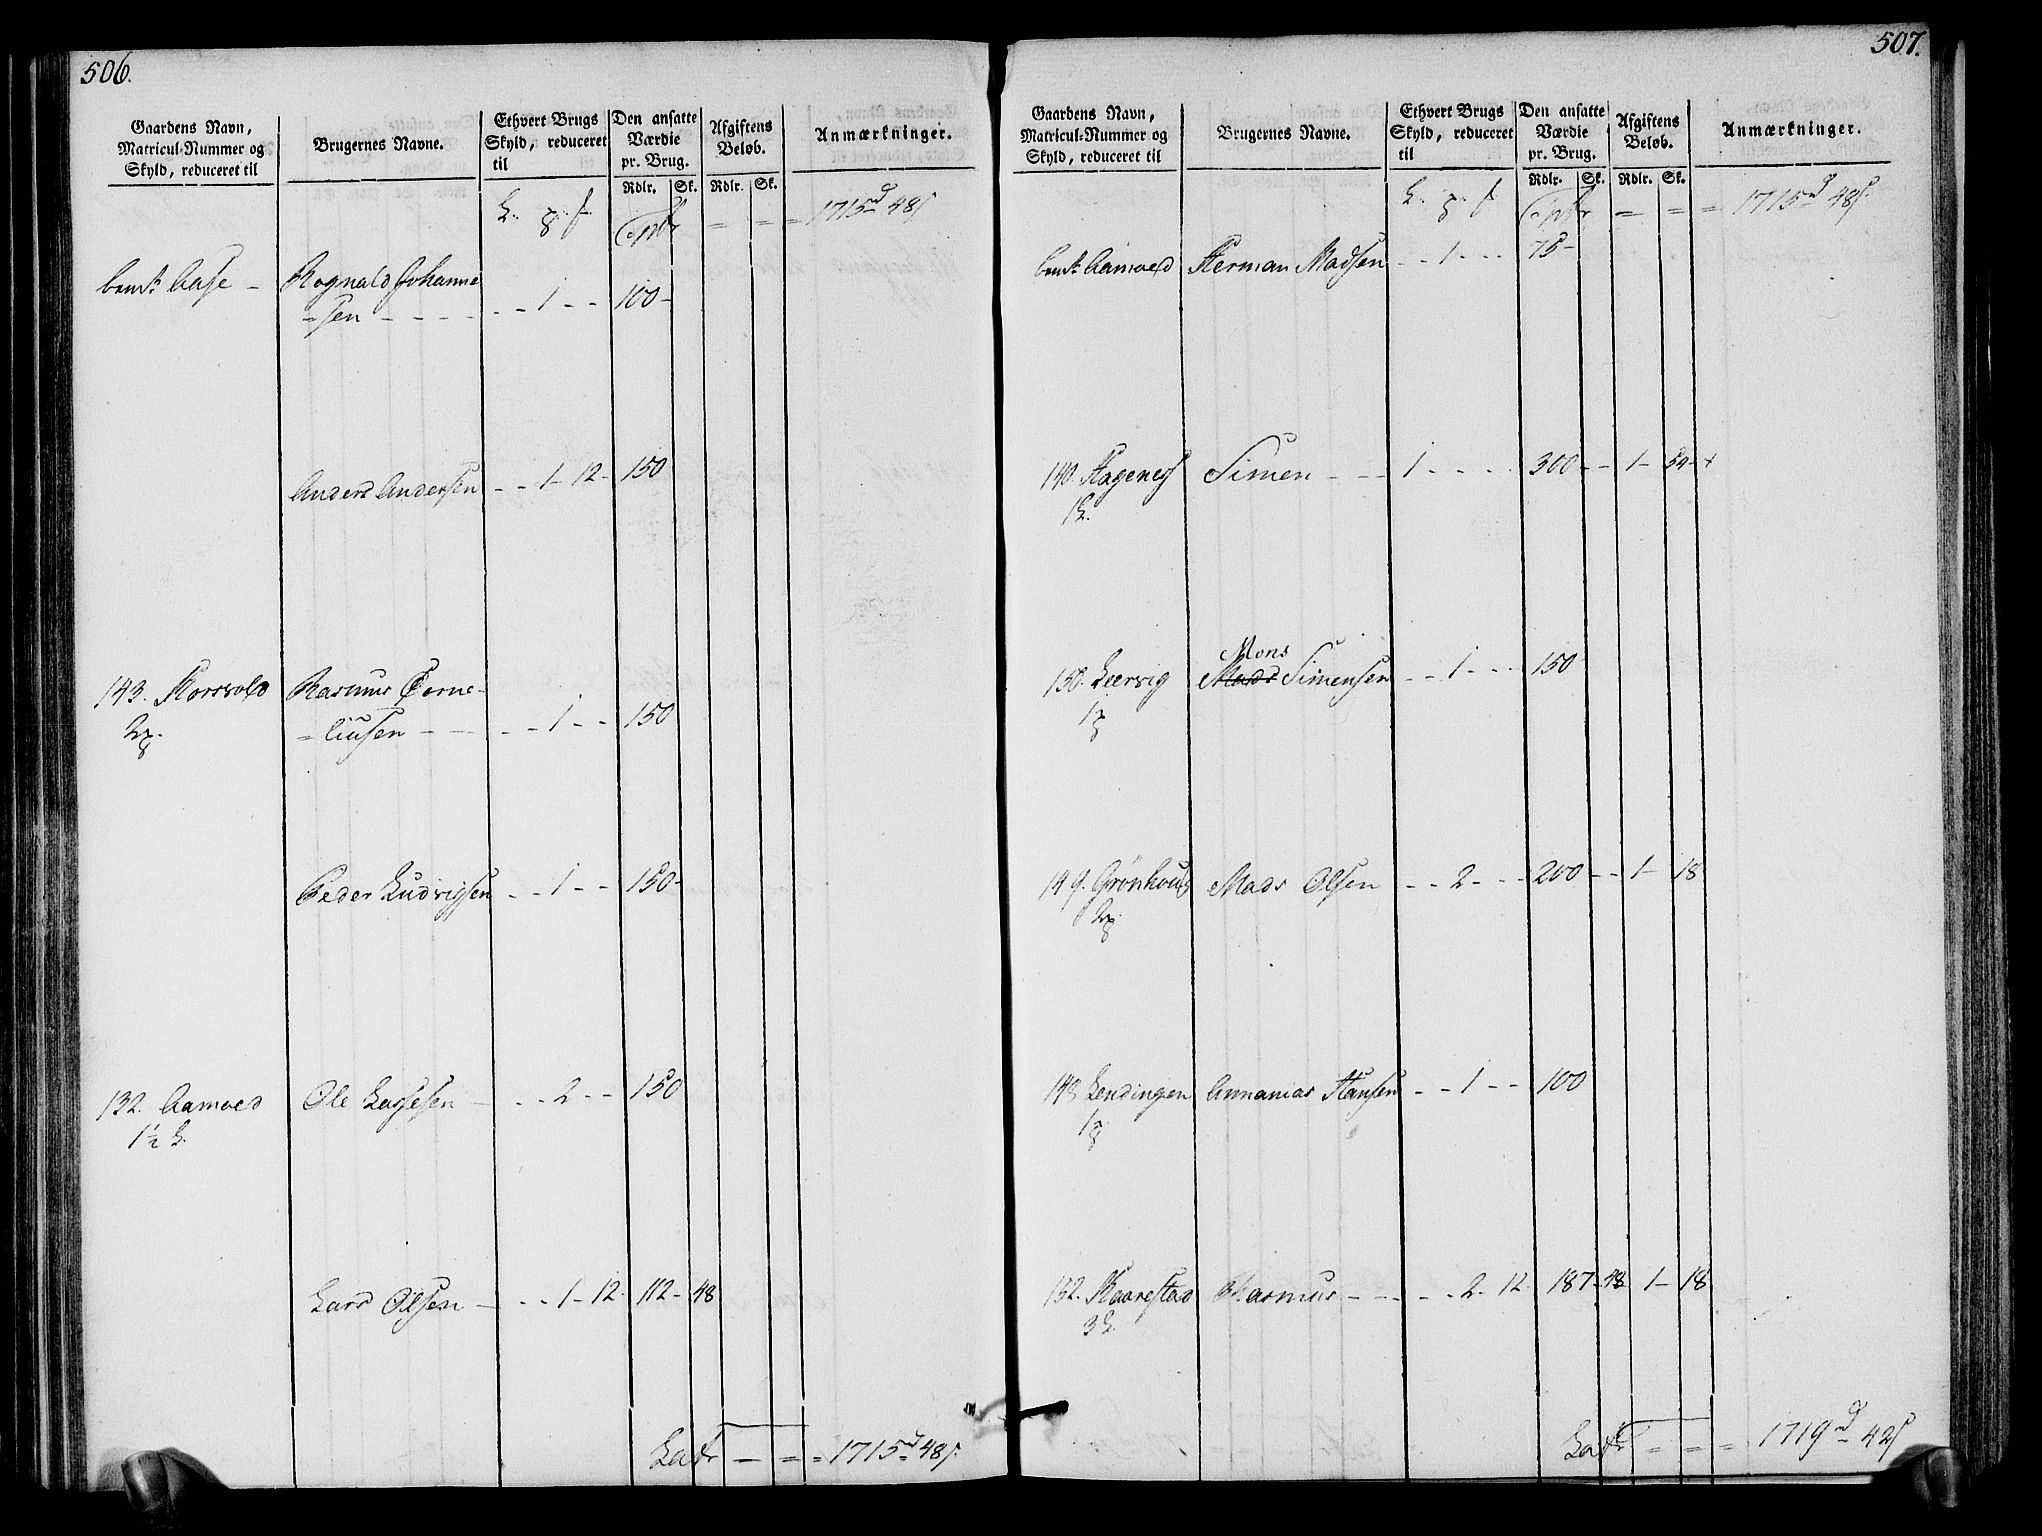 506.
Gaardens Navn,
Matricul-Nummer og
Skyld, reduceret til
Brugernes Navne.
Ethvert Brugs
Skyld, reduceret
til
Den ansatte
Værdie
pr. Brug.
Afgiftens
Beløb.
Anmærkninger.
Rdlr. Sk. Rdlr. Sk.
= = = 1715 48
Aase - Rognald Johanne
=sen - - - - - - 1 - - 100 -
Anders Andersen - - 1 - 12 - 150
143. Korsvold Rasmus Corne-
2 =liusen - - - - 1 - - 150
Peder Ludvigsen - - 1 - - 150 -
132. Aamoed Ole Lassesen - - - 2 - - 150
1½
Lars Olsen - - - 1 - 12 112 - 48
Latr - = = 1715 48
507.
Gaardens Navn,
Matricul-Nummer og
Skyld, reduceret til
Brugernes Navne.
Ethvert Brugs
Skyld, reduceret
til
Den ansatte
Værdie
pr. Brug.
Afgiftens
Beløb.
Anmærkninger.
Rdlr. Sk. Rdlr. Sk.
= = = 1715 48
Aamoed Herman Madsen - - 1 - - - 75 -
140. Hagenes Simen - - - 1 - - - - 300 - - 1 - 54
1
Mons
150. Leervig Mads Simensen - - 1 - - - 150
1
149. Grønhoug Mads Olsen - - 2 - - - 200 - - 1 - 18
2
Lendingen Annanias Hansen - - 1 - - 100
1
152. Kaarestad Rasmus - - - - - 2 - 12 187 - 48 1 - 18
3
Latr = = = 1719 42